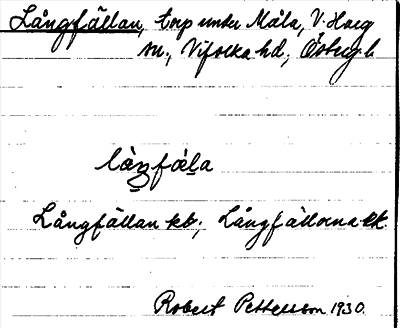 Långfällan, torp under Måla, V. Harg
sn., Vifolka hd, Östergl.
låŋfäl̲a
Långfällan kk; Långfällorna kk.
Robert Pettersson 1930.